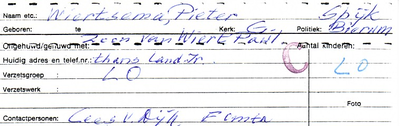 Naam etc.: Wiertsema, Pieter Spijk
Geboren: te Kerk: G. Politiek: Bierum
Zoon van Wiert Pawl
Ongehuwd/gehuwd met: Aantal kinderen:
Huidig adres en telef.nr.: thans Landstr.
Verzetsgroep LO LO
Verzetswerk :
Foto
Contactpersonen: Cees v. Dijk,